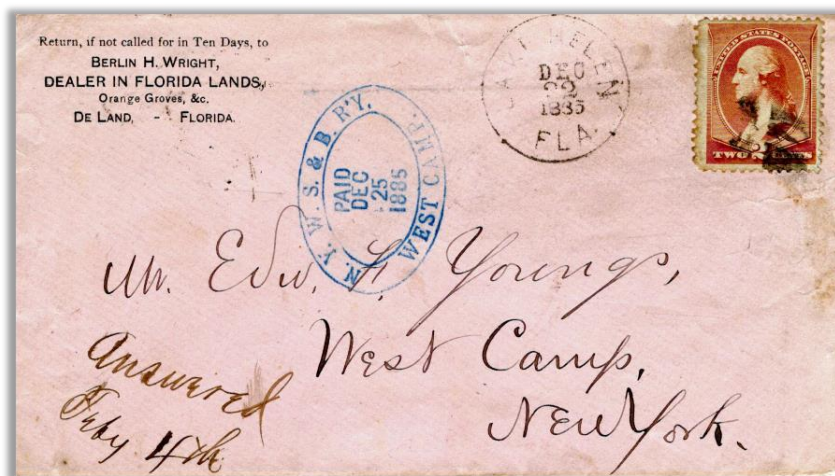 Return, if not called for in Ten Days, to
BERLIN H. WRIGHT,
DEALER IN FLORIDA LANDS,
Orange Groves, &c.
DE LAND, - FLORIDA.
LAKE HELEN
DEC
22
1885
FLA.
UNITED STATES POSTAGE
TWO 2 CENTS
N. Y. W. S. & B. R'Y.
PAID
DEC
25
1885
WEST CAMP.
Mr. Edw. F. Youngs,
West Camp,
New York.
Answered
Feby 4th